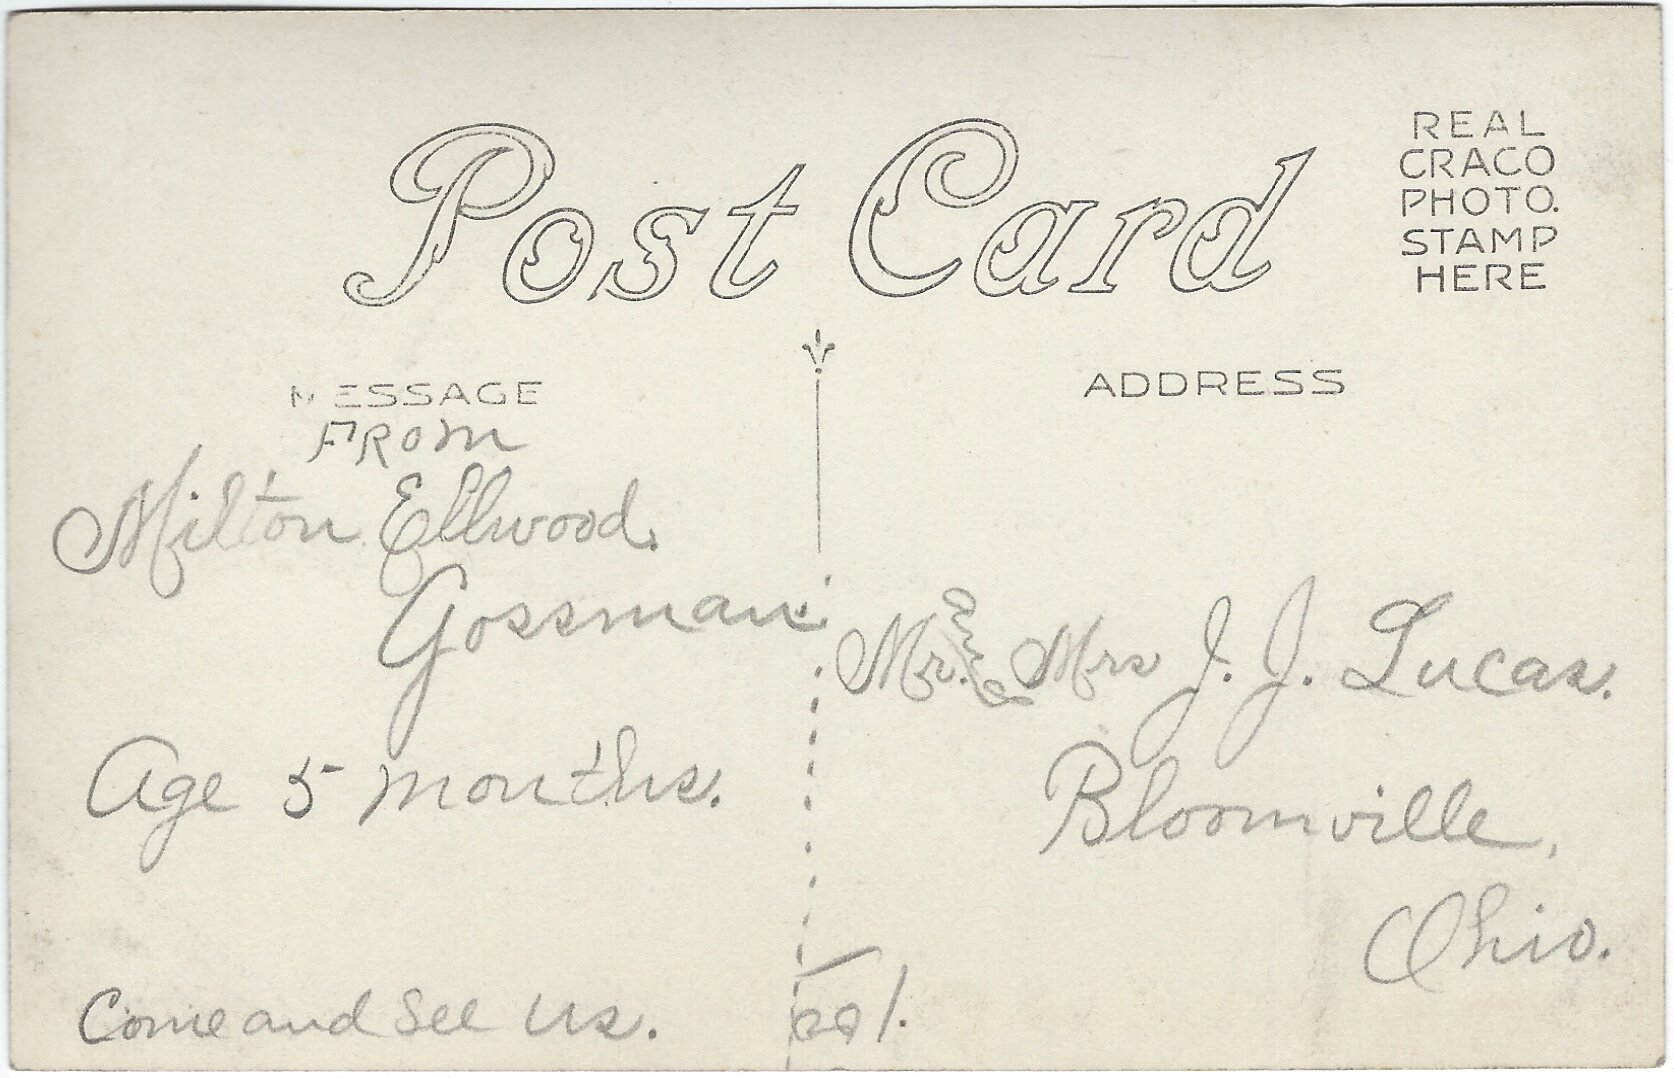 Post Card
REAL
CRACO
PHOTO.
STAMP
HERE
MESSAGE
FROM
Milton Ellwood.
Gossman.
Age 5 months.
Come and See Us.
ADDRESS
Mr. & Mrs J. J. Lucas.
Bloomville,
Ohio.